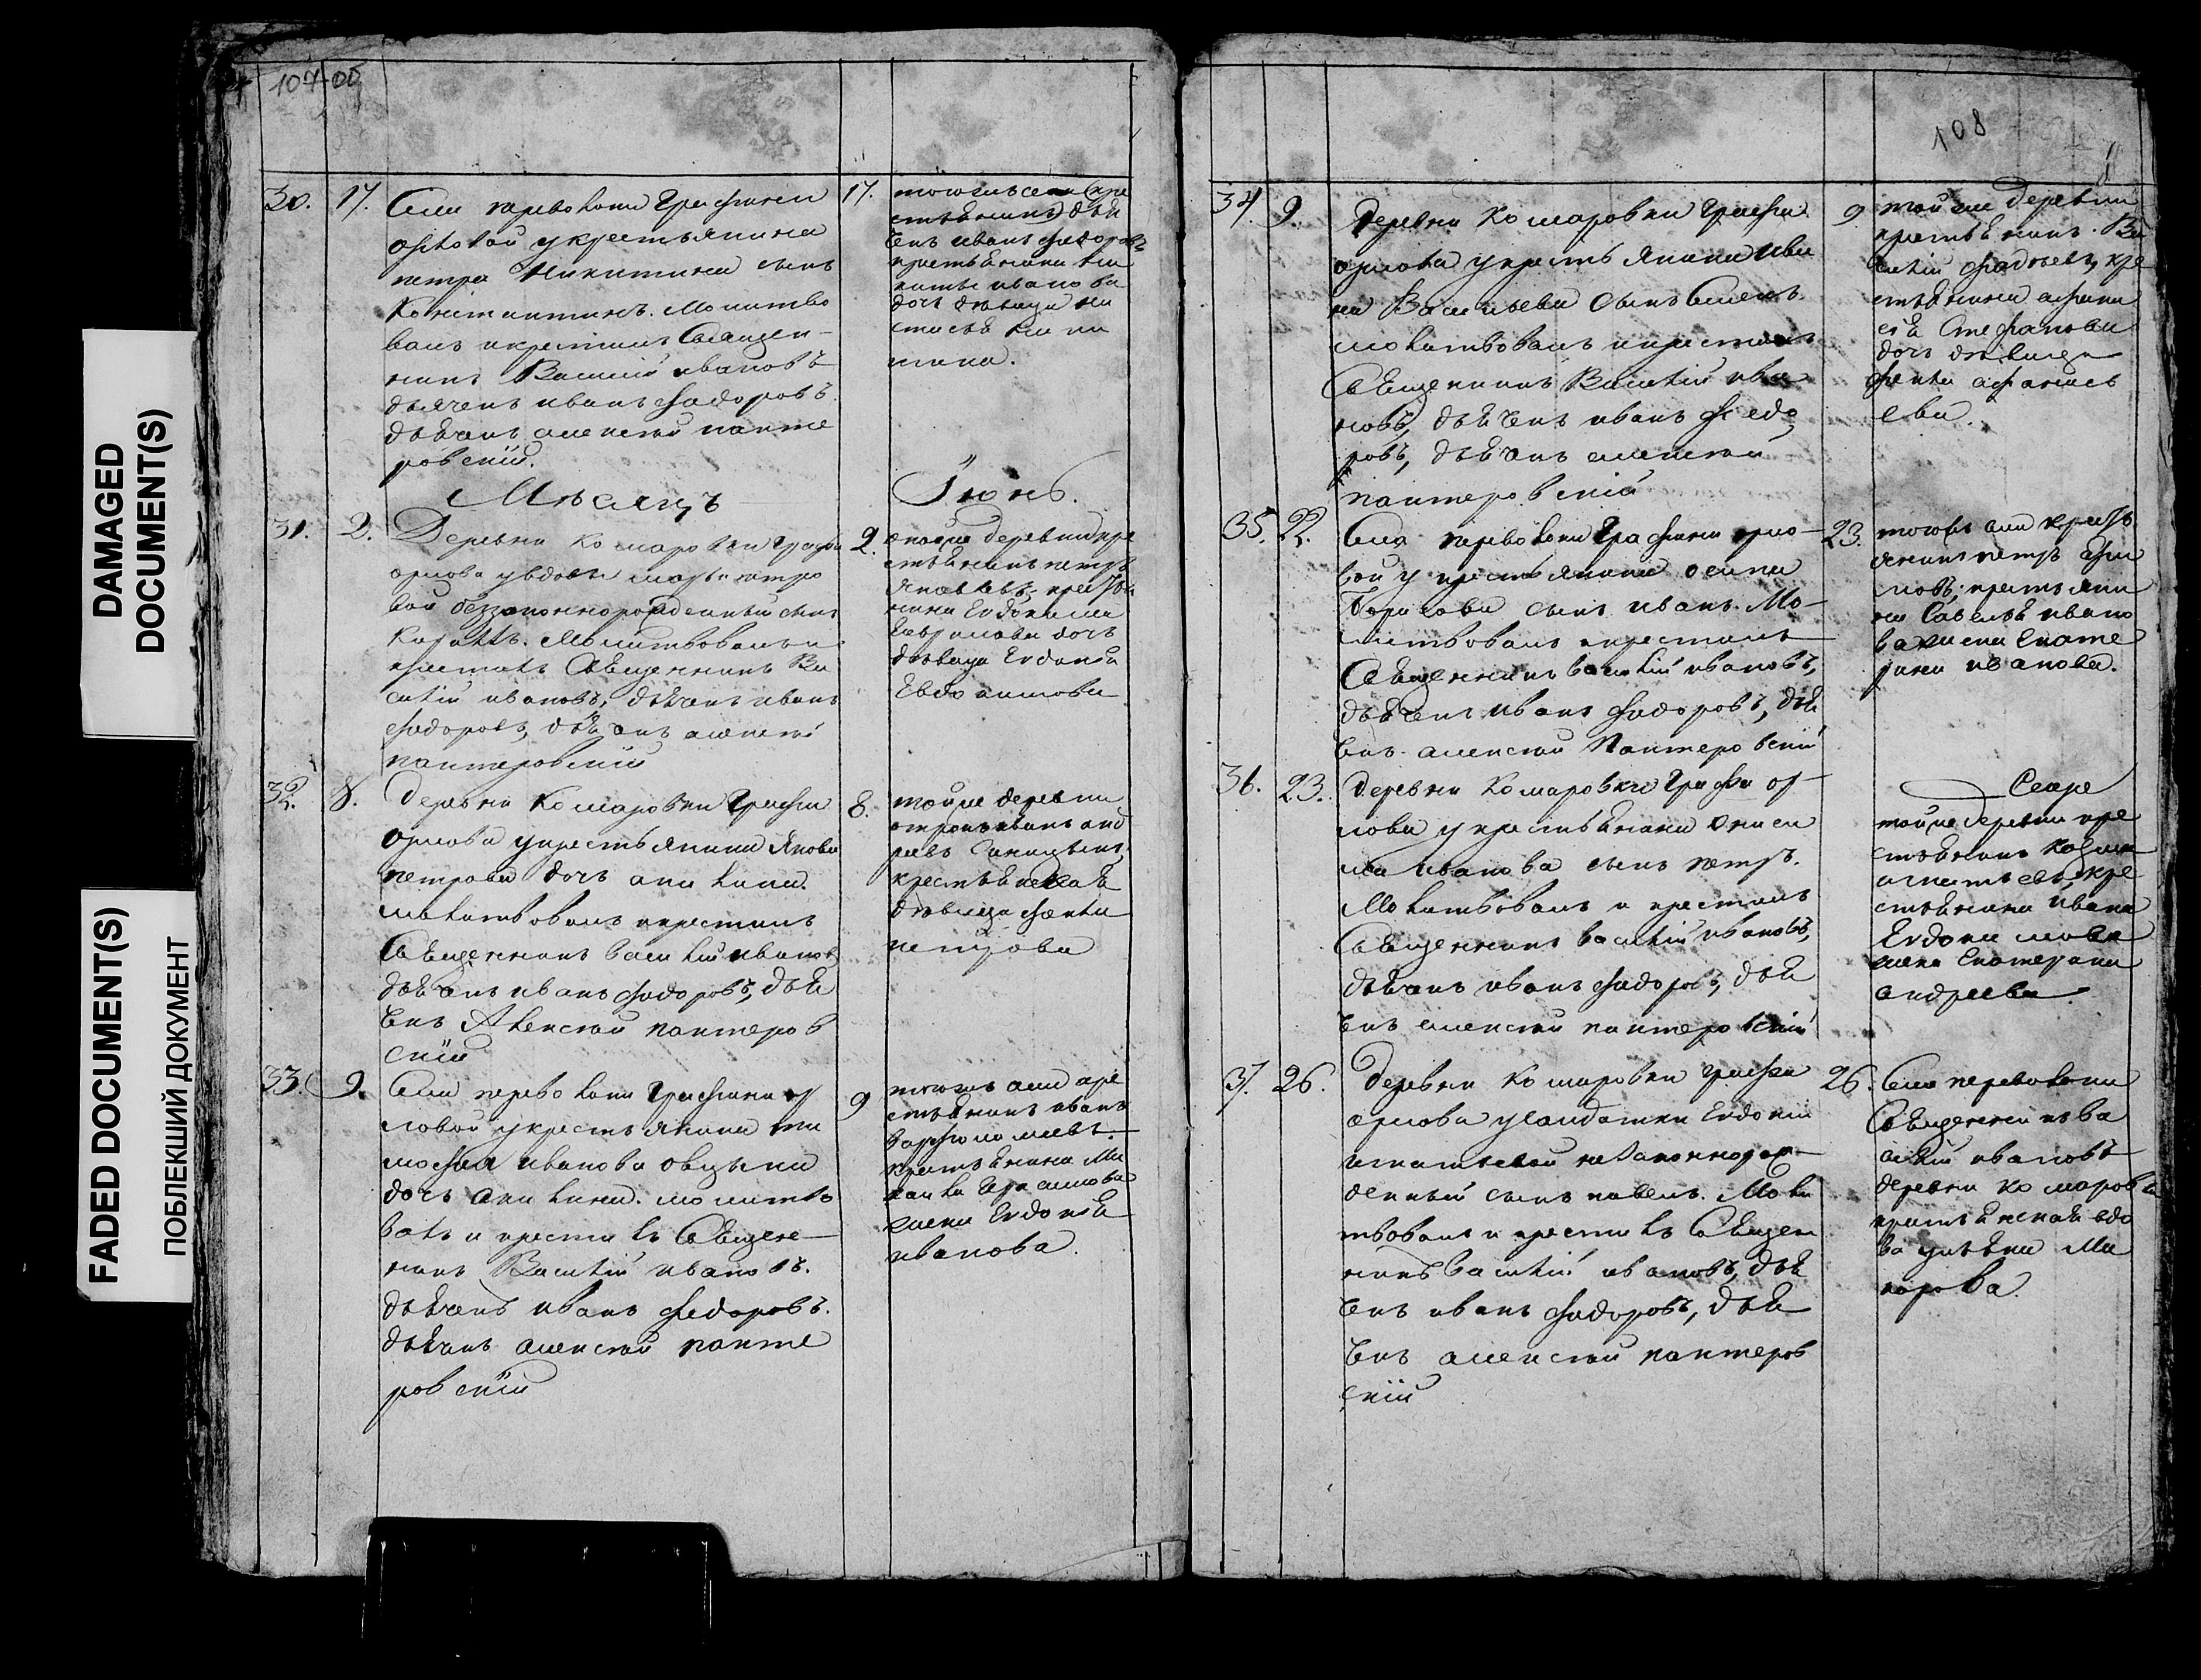 DAMAGED
DOCUMENT(S)
FADED DOCUMENT(S)
ПОБЛЕКШИЙ ДОКУМЕНТ
107 об
30. 17.
Села переволоки Графини
орловой укрестьянина
петра Никитина сынъ
Констинтинъ. Молитво
валъ икрестилъ Священ-
никъ Василий ивановъ
дьячекъ иванъ федоровъ.
дьячекъ алексѣй панте
ровский.
17. тогожъ села
иванъ федоровъ
крестьянина ни
киты иванова
дочь дѣвица на
стасья ни ки
тина.
Мѣсяцъ Июнь.
31. 2. Деревни комаровки Графа
орлова увдовы марьи петро
вой беззаконнорожденный сынъ
Молитвовалъ и
крестилъ Священникъ Ва
силий ивановъ, дьячекъ иванъ
федоровъ, дьячекъ алексѣй
пантеровский
2. тойже деревни кре
стьянинъ петръ
Яковлевъ, крестья
нина Евдокима
дочь
дѣвица Евдокия
Евдокимова
32. 8. Деревни комаровки Графа
орлова укрестьянина Якова
петрова дочь акилина.
молитвовалъ икрестилъ
Священникъ василий ивановъ
дьячекъ иванъ федоровъ, дья
чекъ Алексѣй пантеров
ский
8. тойже деревни
отрокъ иванъ анд
реевъ
крестьянская
дѣвица фекла
петрова
33. 9. Села переволоки Графини ор
ловой укрестьянина ти
мофея иванова овцына
дочь акилина. молитво
валъ и крестилъ Священ-
никъ Василий ивановъ.
дьячекъ иванъ федоровъ.
дьячекъ алексѣй панте
ровский
9 тогожъ села кре
стьянинъ иванъ
варфоломеевъ.
крестьянина Ми
хаила
жена Евдокия
иванова.
108
34. 9. Деревни комаровки Графа
орлова укрестьянина ива
на Васильева сынъ
молитвовалъ икрестилъ
Священникъ Василий ива
новъ, дьячекъ иванъ федо
ровъ, дьячекъ алексѣй
пантеровский
9 тойже деревни
крестьянинъ Ва
силий фадѣевъ, кре
стьянина афана
сия Степанова
дочь дѣвица
фекла афанась
ева.
35. 22. Села переволоки Графини орло-
вой у крестьянина осипа
борисова сынъ иванъ. Мо-
литвовалъ икрестилъ
Священникъ василий ивановъ,
дьячекъ иванъ федоровъ, дья
чекъ алексѣй Пантеровский
23. тогожъ села крестья
янинъ петръ
крестьяни
на Савелья ивано
ва жена Екате
рина иванова.
36. 23. Деревни комаровки Графа ор-
лова у крестьянина
иванова сынъ петръ.
Молитвовалъ и крестилъ
Священникъ василий ивановъ,
дьячекъ иванъ федоровъ, дья
чекъ алексѣй пантеровский
тойже деревни кре
стьянинъ
игнатьевъ, кре
стьянина ивана
Евдокимова
жена Екатерина
андреева.
37. 26. Деревни комаровки Графа
орлова усолдатки Евдокии
игнатьевой незаконнорож-
денный сынъ павелъ. Моли
твовалъ и крестилъ Священ
никъ василий ивановъ, дья
чекъ иванъ федоровъ, дья
чекъ алексѣй пантеров
ский
26. Села переволоки
Священникъ ва
силий ивановъ
деревни комаровки
крестьянская вдо
ва ульяна Ма
карова.